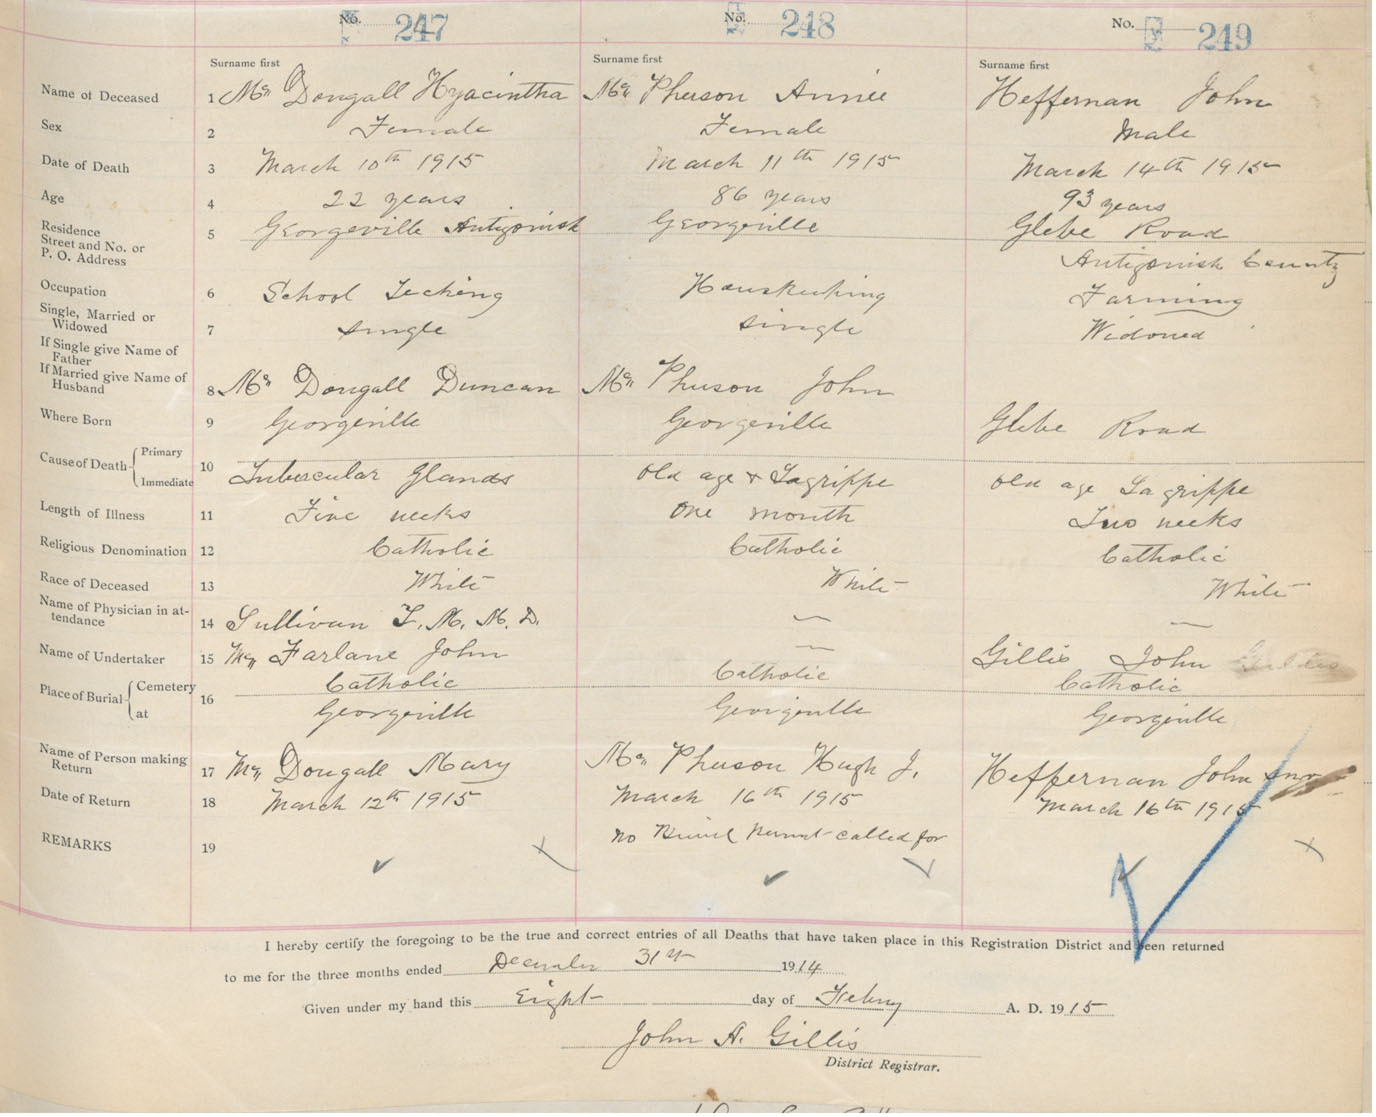 No. 247 No. 248 No. 249
Surname first Surname first Surname first
Name of Deceased 1 Mc Dougall Hyacintha Mc Pherson Annie Heffernan John
Sex 2 Female Female Male
Date of Death 3 March 10th 1915 March 11th 1915 March 14th 1915
Age 4 22 years 86 years 93 years
Residence
Street and No. or 5 Georgeville Antigonish Georgeville Glebe Road
P. O. Address Antigonish County
Occupation 6 School Teching Houskeeping Farming
Single, Married or
Widowed 7 single single Widowed
If Single give Name of
Father
If Married give Name of
Husband 8 Mc Dougall Duncan Mc Pherson John
Where Born 9 Georgeville Georgeville Glebe Road
Cause of Death { Primary
Immediate 10 Tubercular Glands Old age & Lagrippe Old age La grippe
Length of Illness 11 Five weeks One month Two weeks
Religious Denomination 12 Catholic Catholic Catholic
Race of Deceased 13 White White White
Name of Physician in at-
tendance 14 Sullivan F. M. M. D. — —
Name of Undertaker 15 Mc Farlane John — Gillis John
Place of Burial { Cemetery 16 Catholic Catholic Catholic
at Georgeville Georgeville Georgeville
Name of Person making
Return 17 Mc Dougall Mary Mc Pherson Hugh J. Heffernan John
Date of Return 18 March 12th 1915 March 16th 1915 March 16th 1915
REMARKS 19 no Burial Permit called for
I hereby certify the foregoing to be the true and correct entries of all Deaths that have taken place in this Registration District and been returned
to me for the three months ended December 31st 1914
Given under my hand this Eight day of Febury A. D. 1915
John A. Gillis
District Registrar.